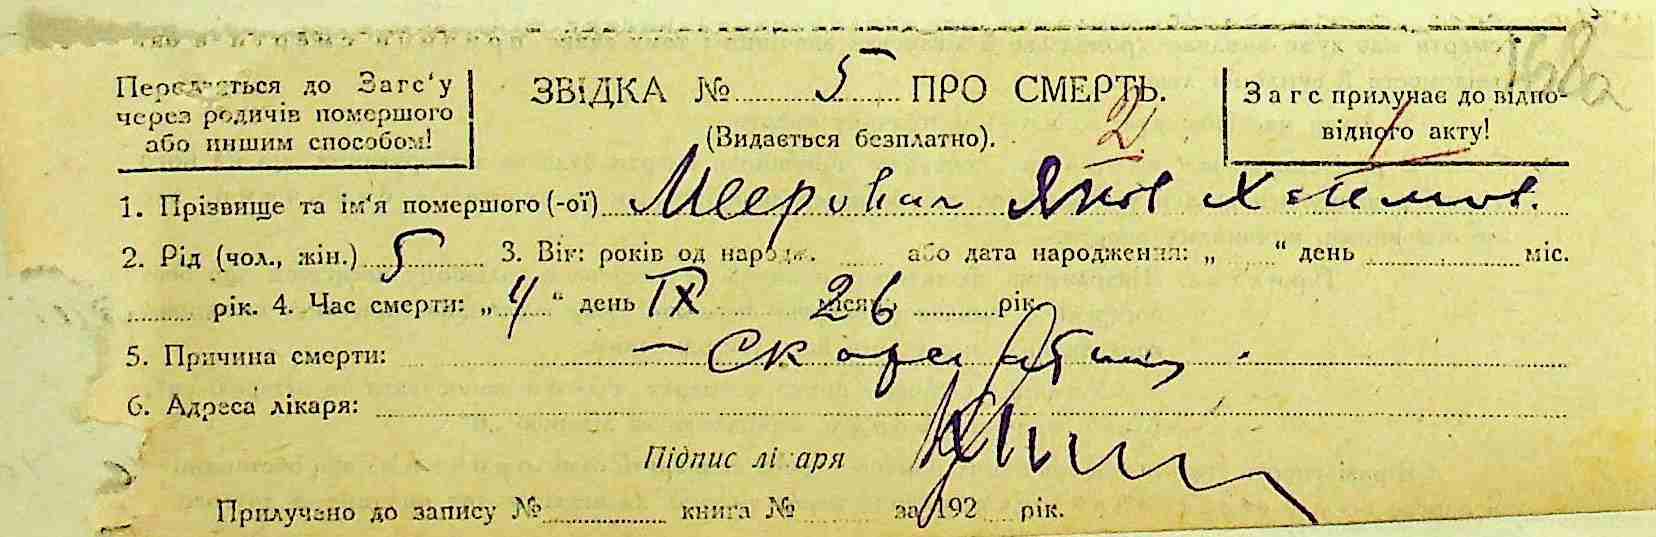 Передається до Загс'у
через родичів помершого
або иншим способом!
ЗВІДКА № 5 ПРО СМЕРТЬ.
(Видається безплатно).
2
Загс прилучає до відпо-
відного акту!
168а
1. Прізвище та ім'я помершого (-ої) Меерович Яков Хаимов.
2. Рід (чол., жін.) 5 3. Вік: років од народж. або дата народження: „ “ день міс.
рік. 4. Час смерти: „4“ день IX місяць 26 рік
5. Причина смерти: – Скарлатина.
6. Адреса лікаря:
Підпис лікаря
Прилучено до запису № книга № за 192 рік.